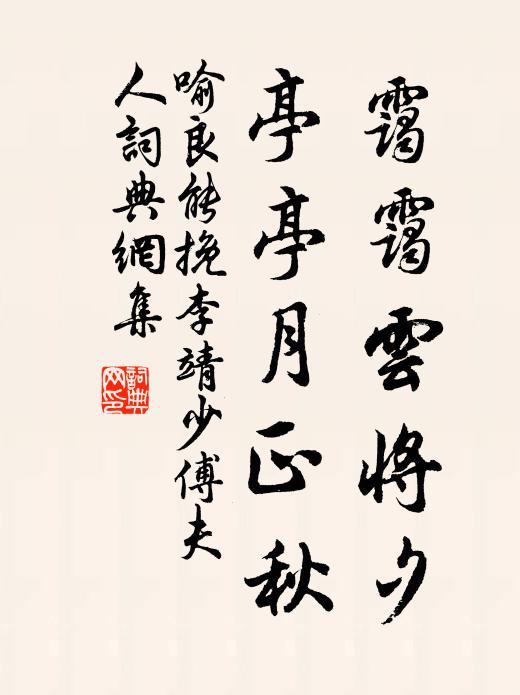 靄靄雲將夕
亭亭月正秋
喻良能挽李靖少傅夫
人詞典網集
詞典
网印